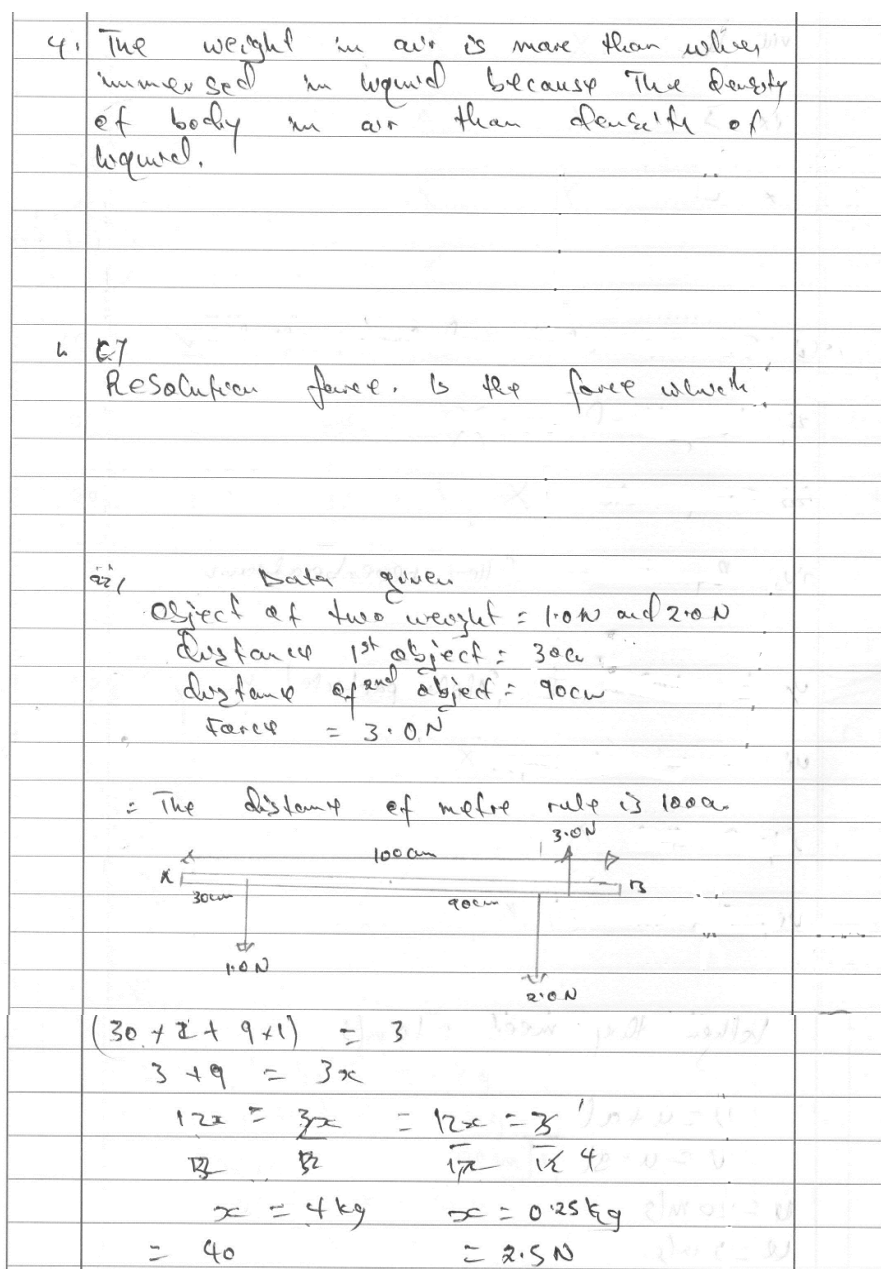 4. The weight in air is more than when
immersed in liquid because The density
of body in air than density of
liquid.
b
Resolution force. is the force which
ii/ Data given
Object of two weight = 1.0N and 2.0N
distance 1st object = 30cm
distance of 2nd object = 90cm
Force = 3.0N
= The distance of metre rule is 100cm
3.0N
100cm
A B
30cm 90cm
1.0N
2.0N
(30 + 2 + 9 + 1) = 3
3 + 9 = 3x
12x = 3x = 12x = 3 1
12 4
x = 4kg x = 0.25kg
= 40 = 2.5N